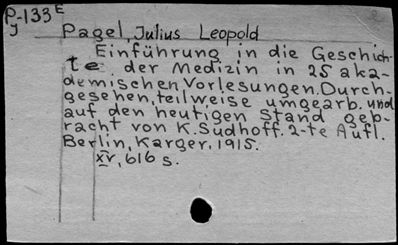 P-133E
J
Pagel, Julius Leopold
Einführung in die Geschich-
te der Medizin in 25 aka-
demischen Vorlesungen. Durch-
gesehen, teilweise umgearb. und
auf den heutigen Stand geb-
racht von K. Sudhoff. 2-te Aufl.
Berlin, Karger, 1915.
XV, 616 s.